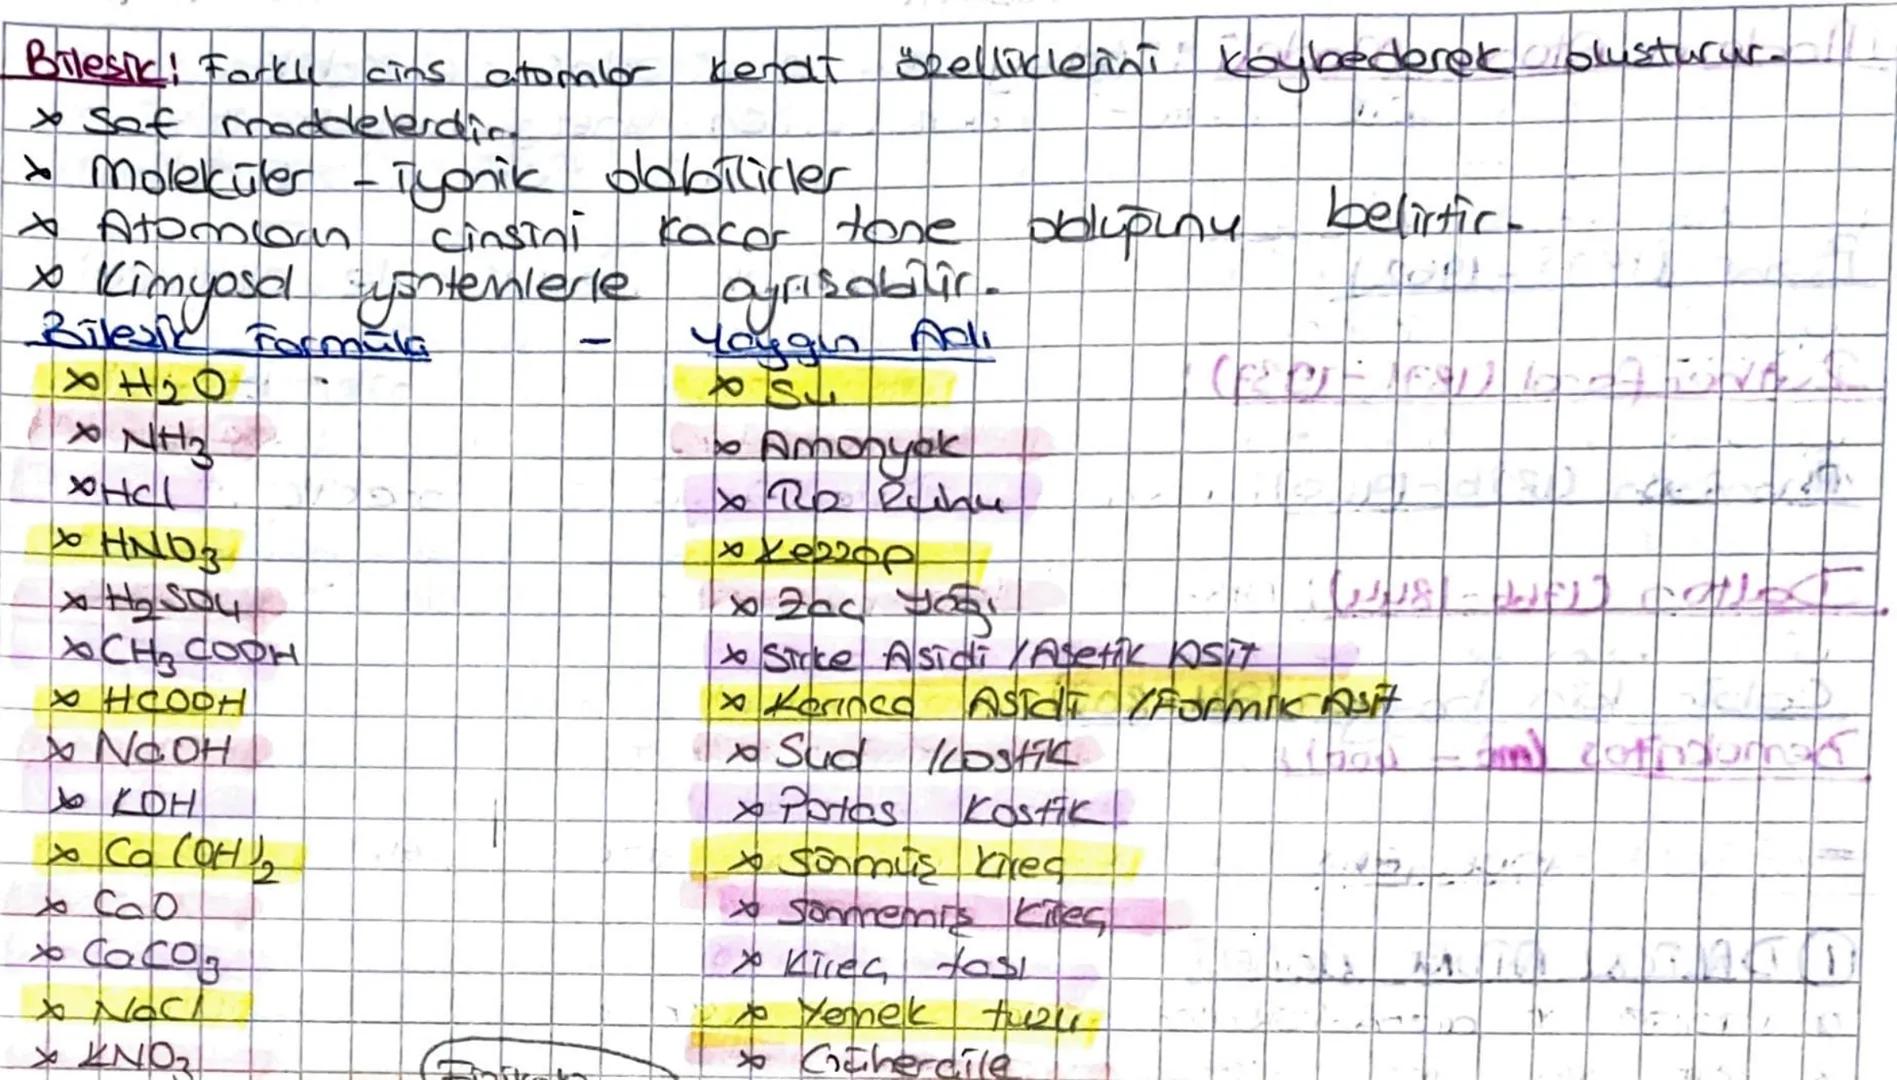 Bileşik: Farklı cins atomlar kendi özelliklerini kaybederek oluşturur.
x Saf maddelerdir.
x Moleküler - İyonik olabilirler
x Atomların cinsini kaçar tane olduğunu belirtir.
x Kimyasal yöntemlerle ayrışabilir.
Bileşik Formülü - Yaygın Adı
x H2O x Su
x NH3 x Amonyak
x HCl x Tuz Ruhu
x HNO3 x Kezzap
x H2SO4 x Zaç Yağı
x CH3COOH x Sirke Asidi / Asetik Asit
x HCOOH x Karınca Asidi / Formik Asit
x NaOH x Sud Kostik
x KOH x Potas Kostik
x Ca(OH)2 x Sönmüş Kireç
x CaO x Sönmemiş Kireç
x CaCO3 x Kireç taşı
x NaCl x Yemek tuzu
x KNO3 x Güherçile